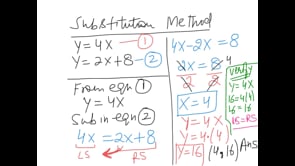 Substitution Method
Y=4X —①
Y=2X+8 —②
From eqn ①
Y=4X
Sub in eqn ②
4X = 2X+8
LS RS
4X-2X=8
2X = 8 4
2 2
X=4
Y=4X
Y=4(4)
Y=16
(4,16) Ans
Verify
Y=4X
16=4(4)
16=16
LS=RS